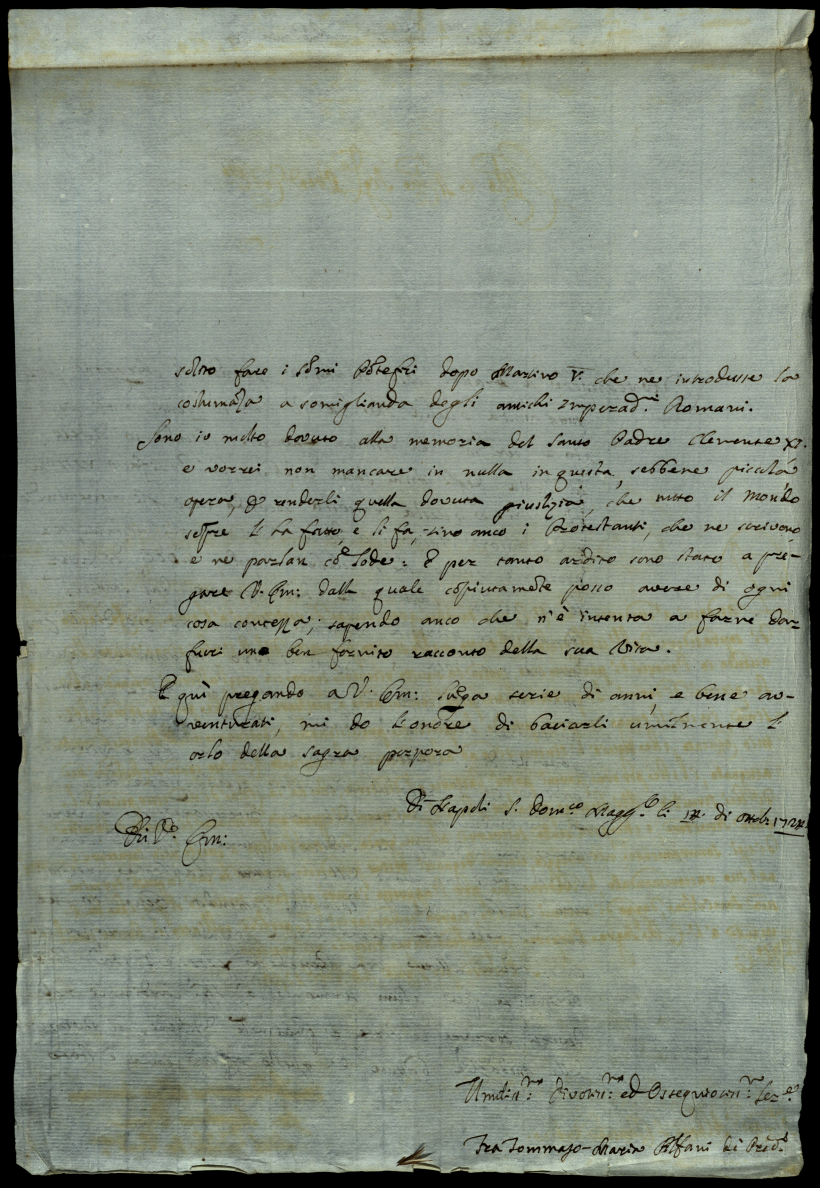 solito fare i Som̃i Põtefici dopo Martino V. che ne introdusse la
costumãza a somiglianza degli antichi Imperad.ri Romani.
Sono io molto dovuto alla memoria del Santo Padre Clemente XI.
e vorrei non mancare in nulla in questa, sebbene piccola
opera, di renderli quella dovuta giustizia, che tutto il Mondo
sẽpre li ha fatto, e li fa, sino anco i Protestanti, che ne scrivono,
e ne parlan cõ lode: E per tanto ardito sono stato a pre-
gare V. Em: dalla quale cõpiutamẽte posso avere di ogni
cosa contezza, sapendo anco che n'è intenta a farne dar
fuori uno ben fornito racconto della sua Vita.
E quì pregando a V. Em: lũga serie di anni, e bene av-
venturati, mi do l'onore di baciarli umilmente l'
orlo della sagra porpora
Di Napoli S. Dom.co Magg.e li di Ottob. 1724.
Di V.ra Em:
Umiliss.mo Divotiss.mo ed Ossequiosiss.mo Ser.e
Fra Tommaso-Maria Alfani de Pred.i